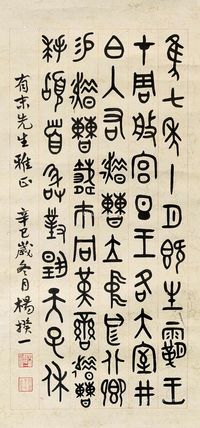 隹七年十月既生霸王
才周般宮旦王各大室井
白入右趞曹立中廷北卿
易趞曹載巿冋黃䜌趞曹
拜𩒨首敢對揚天子休
先生雅正 辛巳歲冬月 楊揆一